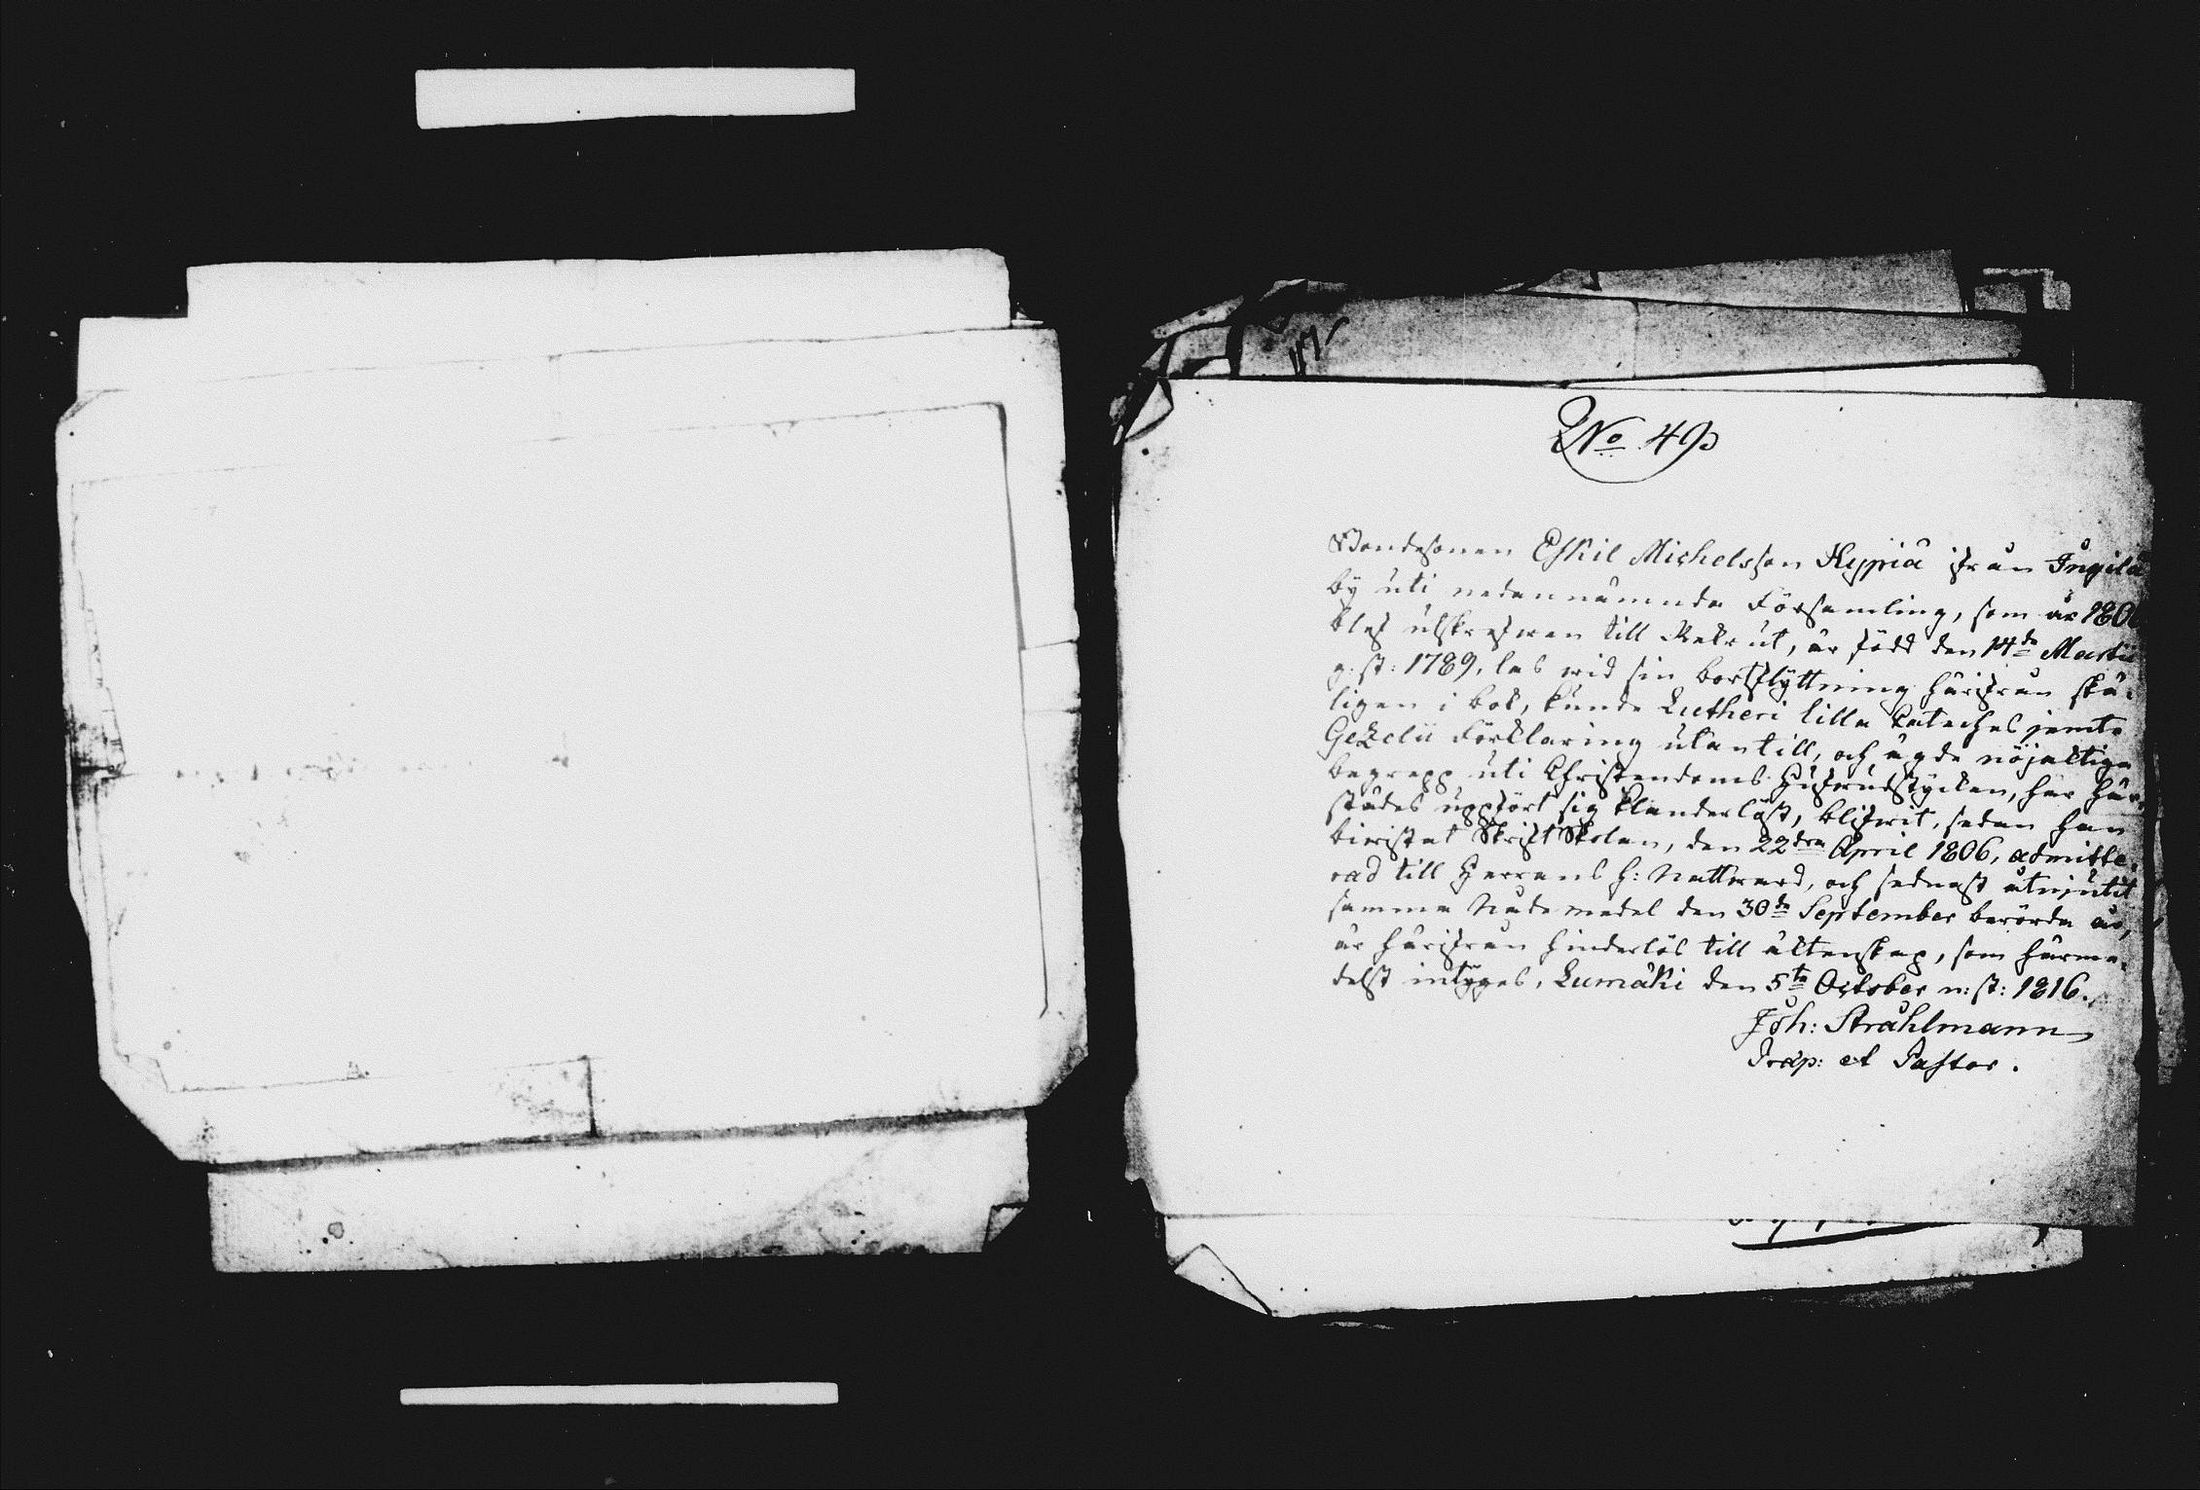 No 49
Bondesonen Eskil Michelsson Hypiä ifrån Ingilä
by uti nedannämnda Församling, som år 180
blef utskrefwen till Rekrut, är född den 14de Martii
g: st: 1789, las wid sin bortflyttning härifrån skä-
ligen i bok, kunde Lutheri lilla Cateches jemte
Gezelii Förklaring utantill, och ägde nöjaktiga
begrepp uti Christendoms Hufwudstycken, har här-
städes uppfört sig klanderlöst, blifwit, sedan han
biwistat Skrift Skolan, den 22dra April 1806, admitte-
rad till Herrans H: Nattward, och sednast åtnjutit
samma Nådemedel den 30de September berörde år,
är härifrån hinderlös till äktenskap, som härme-
delst intygas, Lumäki den 5te October n: st: 1816.
Joh: Stråhlmann
Præp: et Pastor.